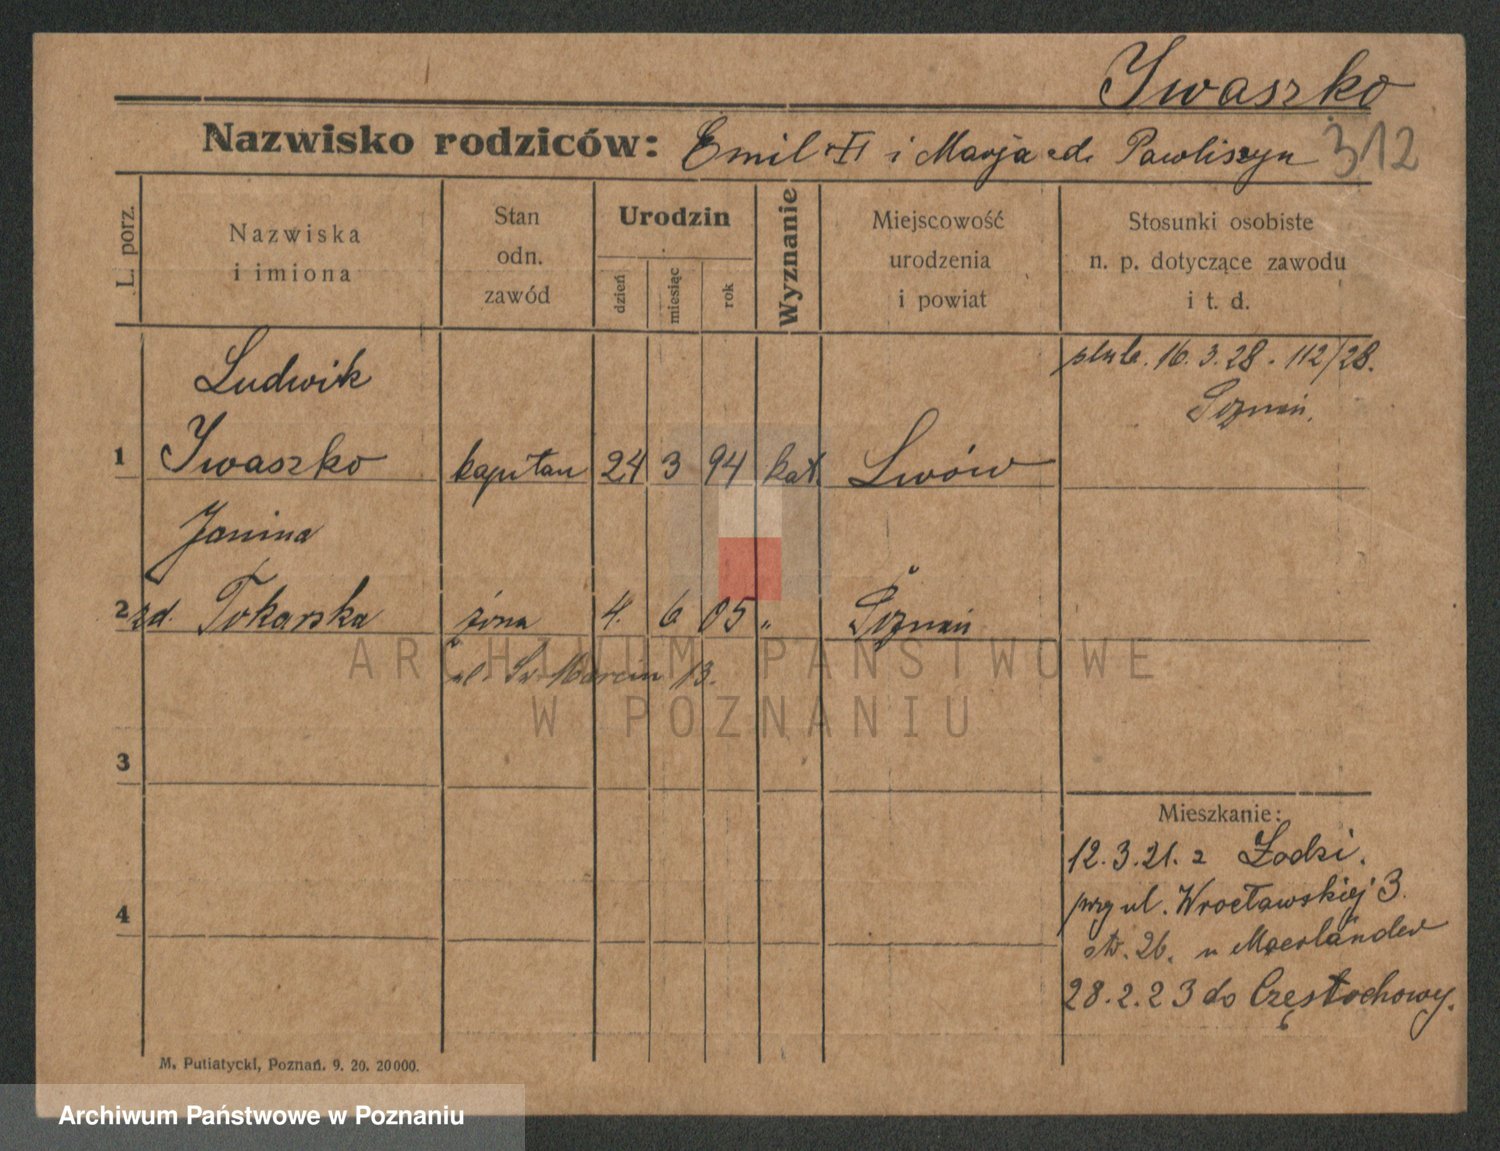 Iwaszko
Nazwisko rodziców: Emil i Marja zd. Pawliszyn 312
L. porz.
Nazwiska
i imiona
Stan
odn.
zawód
Urodzin
dzień
miesiąc
rok
Wyznanie
Miejscowość
urodzenia
i powiat
Stosunki osobiste
n. p. dotyczące zawodu
i t. d.
ślub. 16.3.28 - 112/28.
Poznań.
Ludwik
1 Iwaszko kapitan 24 3 94 kat. Lwów
Janina
2 zd. Tokarska żona 4. 6 05 " Poznań
ul. Św. Marcin 13.
3
4
Mieszkanie:
12.3.21. z Łodzi.
przy ul. Wrocławskiej 3.
str. 26. u
28.2.23 do Częstochowy.
M. Putiatycki, Poznań. 9. 20. 20000.
ARCHIWUM PAŃSTWOWE
W POZNANIU
Archiwum Państwowe w Poznaniu